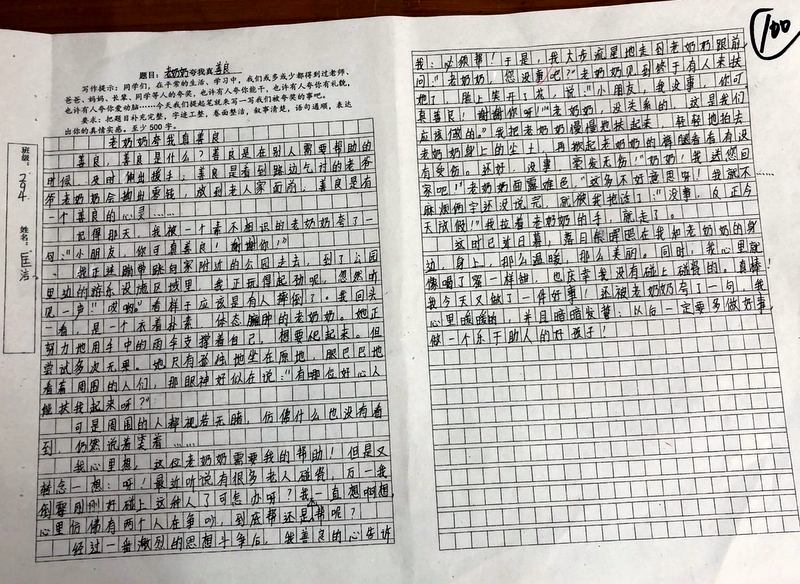 100
题目：老奶奶夸我真善良
写作提示：同学们，在平常的生活、学习中，我们或多或少都得到过老师、
爸爸、妈妈、长辈、同学等人的夸奖，也许有人夸你能干，也许有人夸你有礼貌，
也许有人夸你爱动脑……今天我们提起笔就来写一写我们被夸奖的事吧。
要求：把题目补充完整，字迹工整，卷面整洁，叙事清楚，语句通顺，表达
出你的真情实感，至少500字。
班级：
姓名：匡洁
老奶奶夸我真善良
善良，善良是什么？善良是在别人需要帮助的
时候，及时伸出援手；善良是看到路边乞讨的老爷
爷老奶奶会掏出零钱，放到老人家面前，善良是有
一个善良的心灵……
记得那天，我被一个素不相识的老奶奶夸了一
句：“小朋友，你可真善良！谢谢你！”
我正蹦蹦跳跳向家附近的公园走去，到了公园
里边的游乐设施区域里，我正玩得起劲呢，忽然听
见一声“哎哟。”看样子应该是有人摔倒了。我回头
一看，是一个衣着朴素，体态臃肿的老奶奶。她正
努力地用手中的雨伞支撑着自己，想要爬起来。但
尝试多次无果。她只有孤独地坐在原地，眼巴巴地
看着周围的人们，那眼神好似在说：“有哪位好心人
能扶我起来呀？”
可是周围的人都视若无睹，仿佛什么也没有看
到，仍然说着笑着……
我心里想，这位老奶奶需要我的帮助！但是又
转念一想：呀！最近听说有很多老人碰瓷，万一我
倒霉刚刚好碰上这种人了可怎办呀？我一直想啊想，
心里仿佛有两个人在争吵，到底帮还是不帮呢？
经过一番激烈的思想斗争后，我善良的心告诉
我：必须帮！于是，我大步流星地走到老奶奶跟前
问“老奶奶，您没事吧？”老奶奶见到终于有人来扶
她了，脸上笑开了花，说：“小朋友，我没事，你可
真善良！谢谢你呀！”“老奶奶，没关系的，这是我们
应该做的。”我把老奶奶慢慢地扶起来，轻轻地拍去
老奶奶身上的尘土，再掀起老奶奶的裤腿看看有没
有受伤。还好，没事，家发无伤！“奶奶！我送您回
家吧！”老奶奶面露难色，“这多不好意思呀！我就不……
麻烦俩字还没说完，就被我拒话了：“没事，反正今
天放假！”我拉着老奶奶的手，就走了。
这时已近日暮，落日余晖照在我和老奶奶的身
边，身上，那么温暖，那么美丽。同时，我心里就
像喝了蜜一样甜，也庆幸我没有碰上碰瓷的。真棒！
我今天又做了一件好事！还被老奶奶夸了一句，我
心里暖暖的，并且暗暗发誓：以后一定要多做好事，
做一个乐于助人的好孩子！